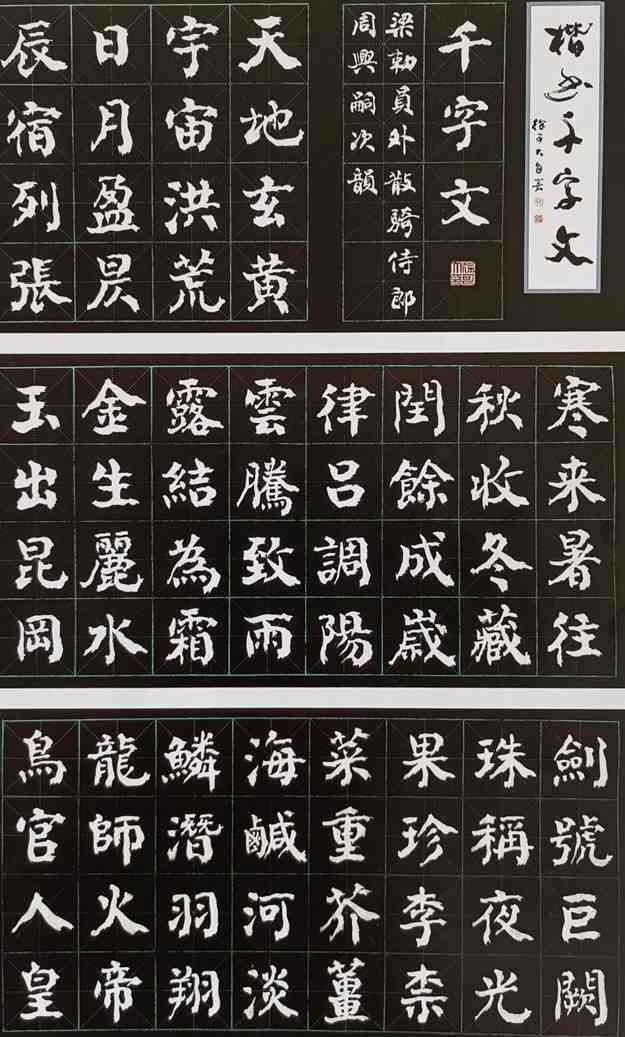 楷书千字文
千字文
梁勅員外散騎侍郎
周興嗣次韻
天地玄黄
宇宙洪荒
日月盈昃
辰宿列張
寒来暑往
秋收冬藏
閏餘成歲
律呂調陽
雲騰致雨
露結為霜
金生麗水
玉出昆岡
劍號巨闕
珠稱夜光
果珍李柰
菜重芥薑
海鹹河淡
鱗潛羽翔
龍師火帝
鳥官人皇